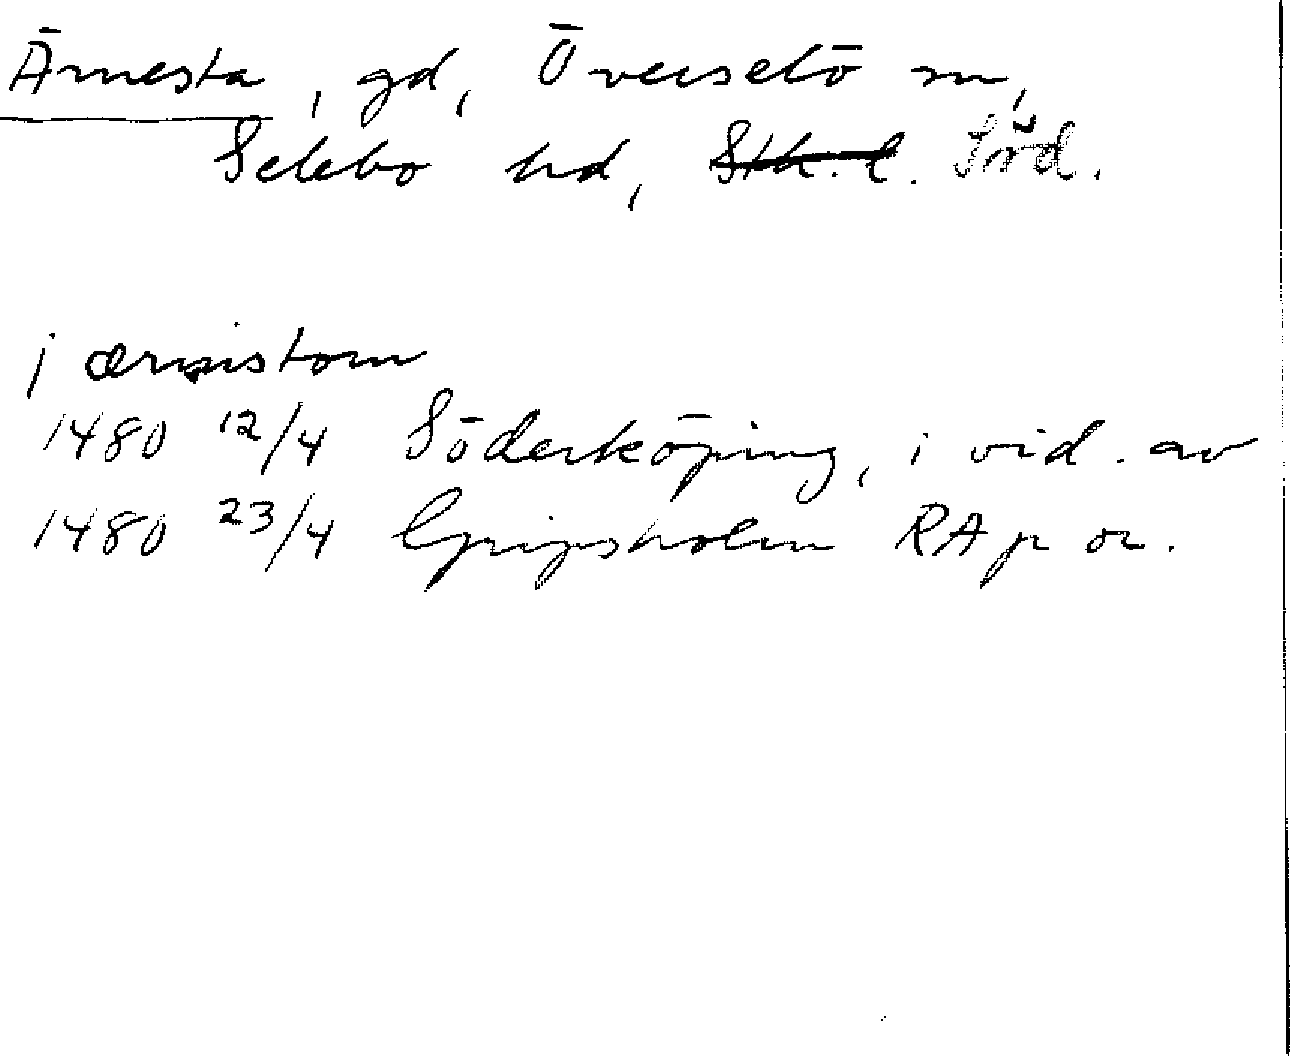 Ärnesta, gd, Överselö sn,
Selebo hd, Sth. l. Söd.
j ærnistom
1480 12/4 Söderköping, i vid. av
1480 23/4 Gripsholm RA p or.